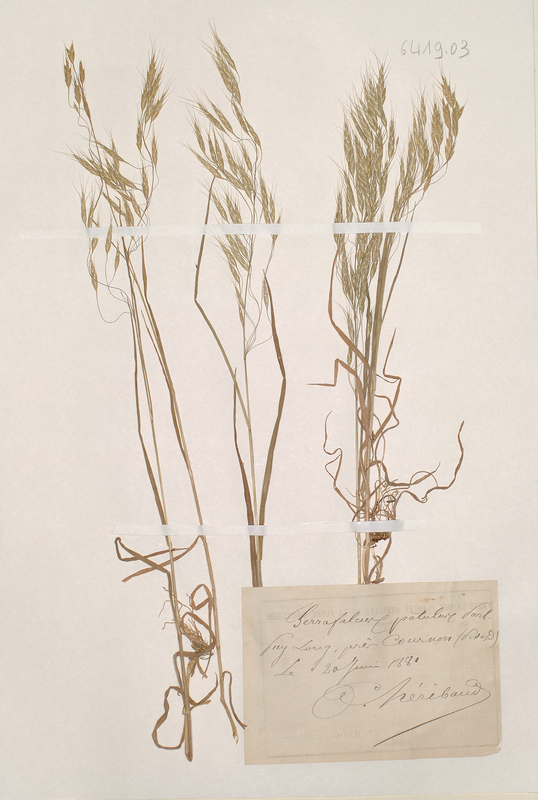 6419.03
Serrafalcus patulus Parl
Puy Long, près Cournon (P. de D)
Le 20 Juin 1881
Héribaud